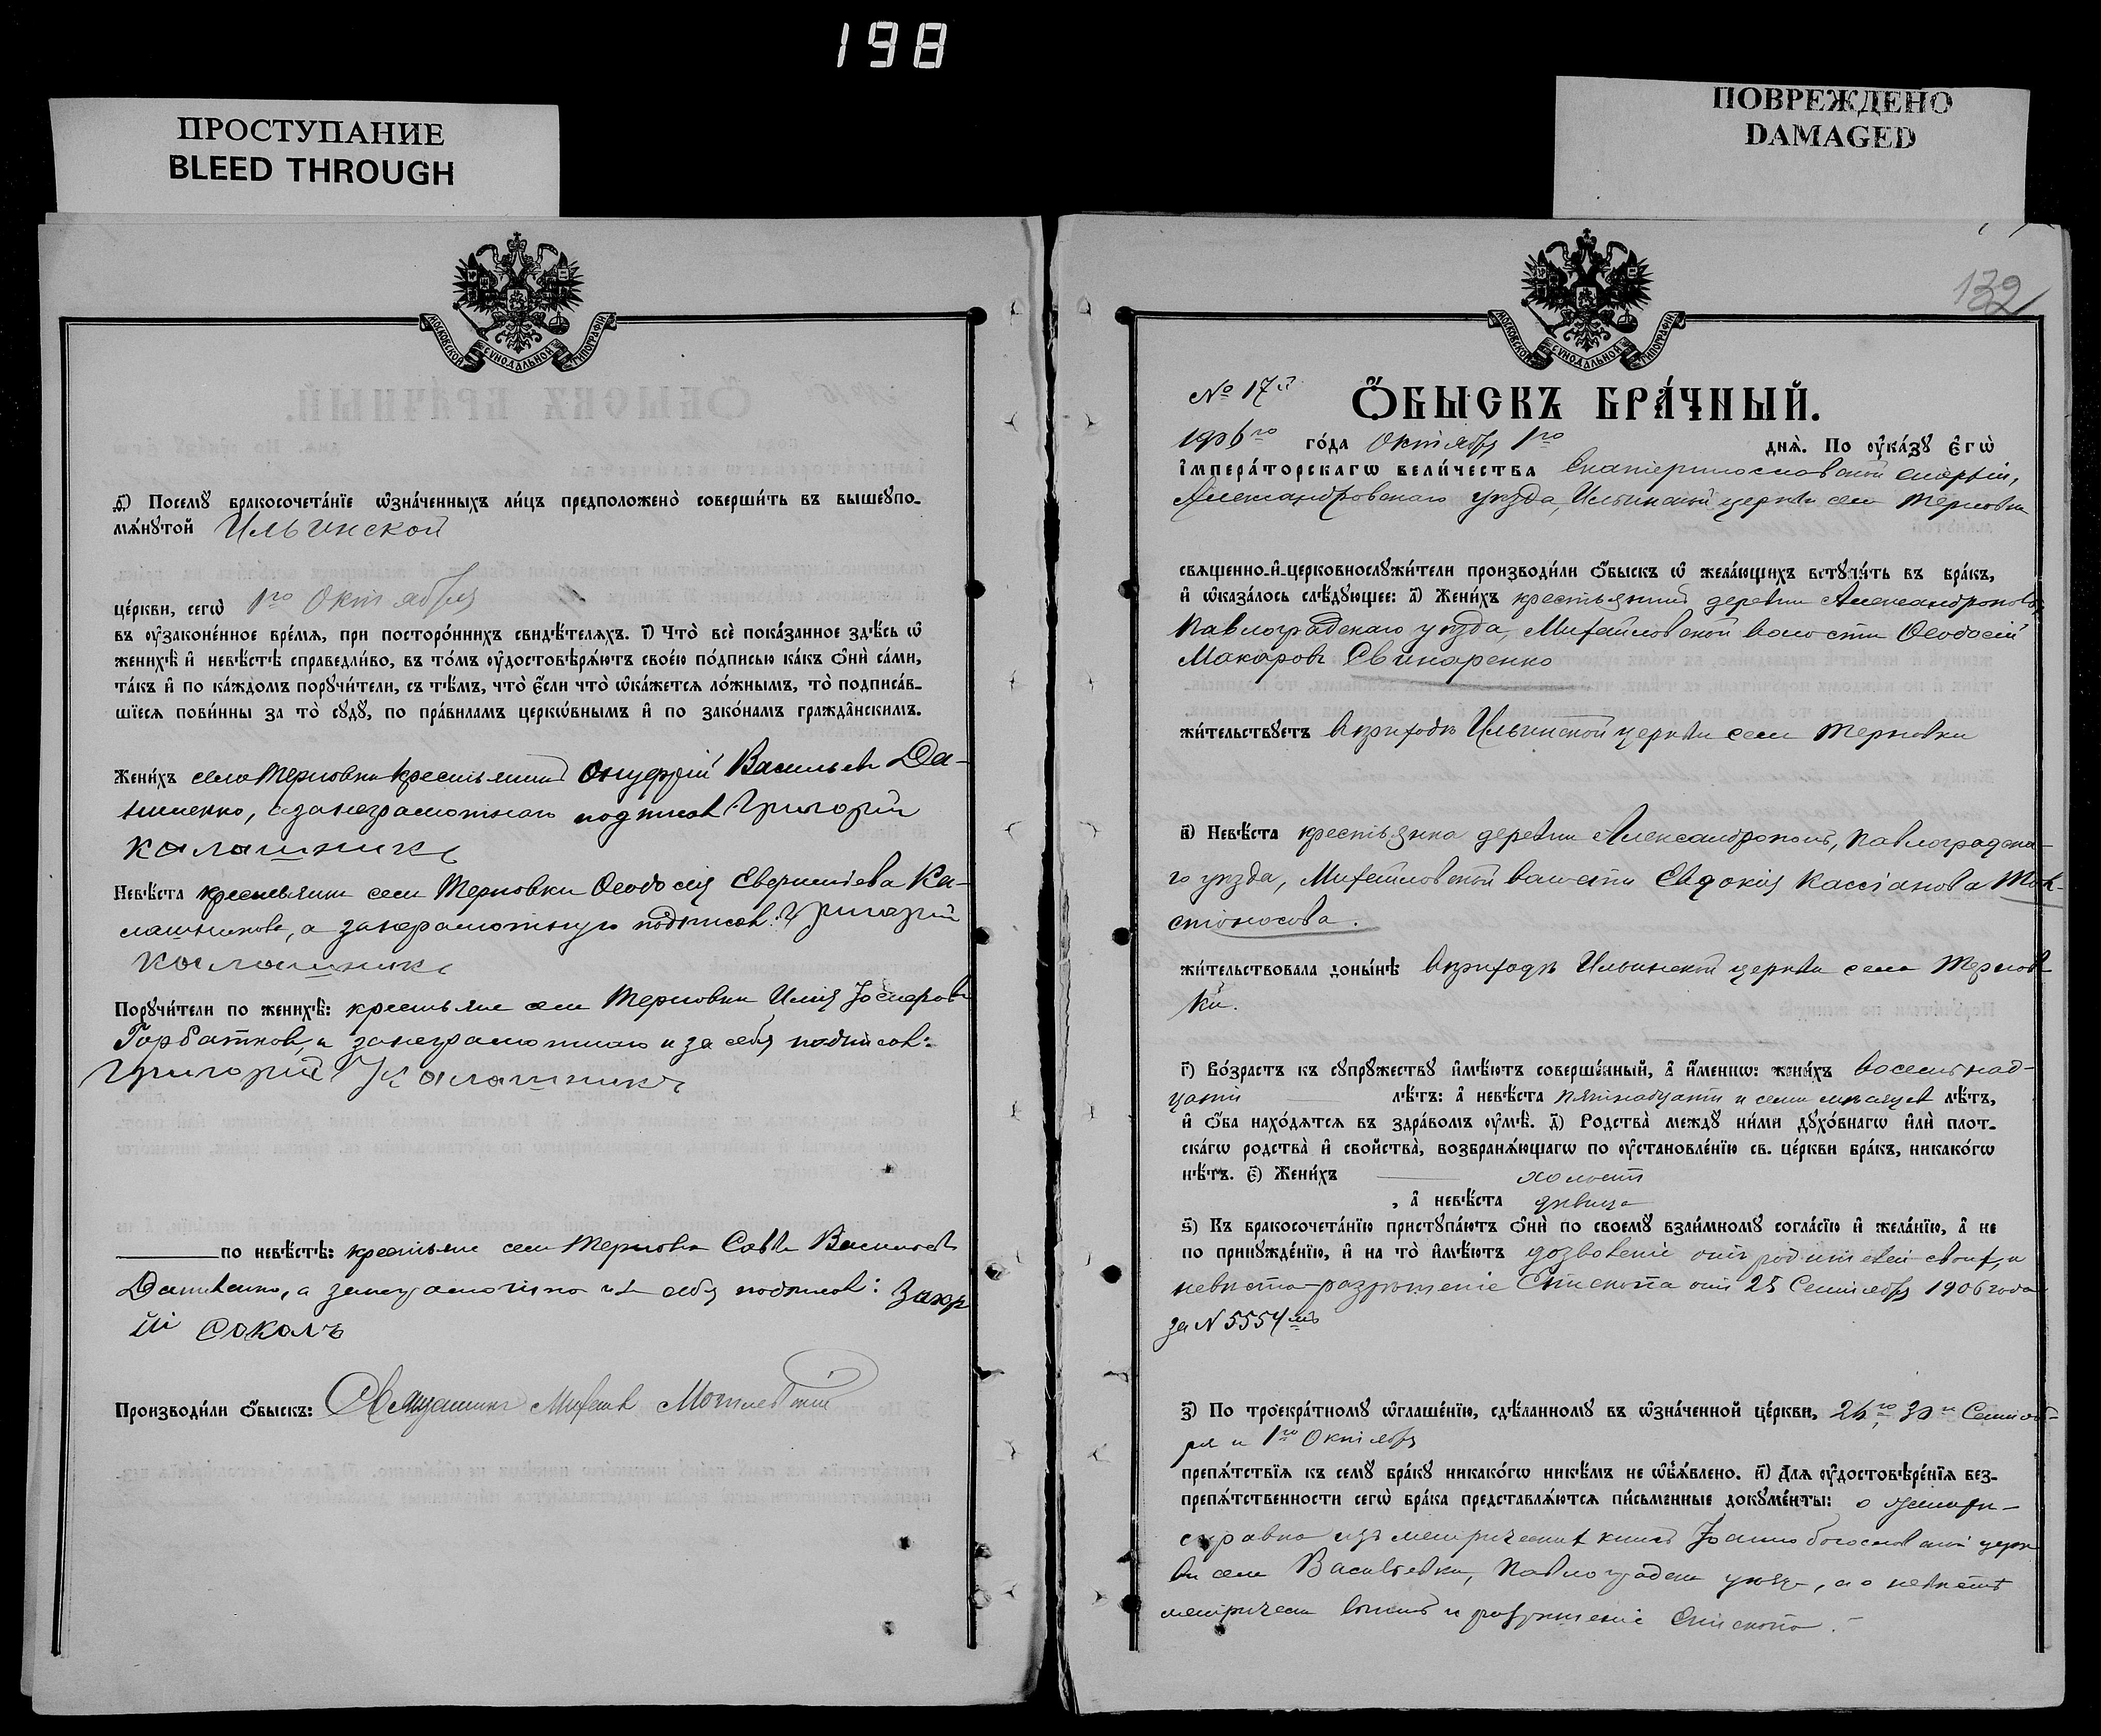 198
ПРОСТУПАНИЕ
BLEED THROUGH
ПОВРЕЖДЕНО
DAMAGED
МОСКОВСКОЙ СѴНОДАЛЬНОЙ ТИПОГРАФІИ
д҃) Посемꙋ бракосочета́нїе ѡ҆зна́ченныхъ ли́цъ предположено̀ соверши́ть въ вышеупо-
мѧ́нутой Ильинской
це́ркви, сегѡ̀ 1го Октября
въ оу҆законе́нное вре́мѧ, при посторо́ннихъ свидѣ́телѧхъ. і҃) Что̀ всѐ пока́занное здѣ́сь ѡ҆
женихѣ̀ и҆ невѣ́стѣ справедли́во, въ то́мъ оу҆достовѣрѧ́ютъ свое́ю по́дписью ка́къ ѻ҆нѝ са́ми,
та́къ и҆ по ка́ждомъ порꙋчи́тели, съ тѣ́мъ, что̀ є҆́сли что̀ ѡ҆ка́жетсѧ ло́жнымъ, то̀ подписа́в-
шїесѧ пови́нны за то̀ сꙋдꙋ̀, по пра́виламъ церкѡ́внымъ и҆ по зако́намъ гражда̂нскимъ.
Жени́хъ села Терновки крестьянинъ Онуфрій Васильевъ Да-
ниленко, а за неграмотнаго подписов Григорій
Калашникъ
Невѣ́ста крестьянка села Терновки Ѳеодосія Ка-
лашникова, а за неграмотную подписов: Григорій
Калашникъ
Порꙋчи́тели по женихѣ̀: крестьяне села Терновки Илія
Горбатков, а за неграмотнаго и за себя подписов:
Григорій Калашникъ
по невѣ́стѣ: крестьяне села Терновки Савва Васильевъ
Даниленко, а за неграмотнаго и за себя подписов: Захар
ій Соколъ
Производи́ли ѻ҆́быскъ: Священникъ Михаилъ
132
№ 17й
Ѻ҆́БЫСКЪ БРА́ЧНЫЙ.
1906го го́да Октября 1го днѧ̀. По оу҆ка́зꙋ є҆гѡ̀
і҆мпера́торскагѡ вели́чества Екатеринославской епархіи,
Александровскаго уѣзда, Ильинской церкви села Терновки
свѧщенно-и҆-церковнослꙋжи́тели производи́ли ѻ҆́быскъ ѡ҆ жела́ющихъ встꙋпи́ть въ бра́къ,
и҆ ѡ҆каза́лось слѣ́дующее: а҃) Жени́хъ крестьянинъ деревни Александрополь,
Павлоградскаго уѣзда, Михайловской волости Ѳеодосій
Макаровъ Свинаренко
жи́тельствꙋетъ въ приходѣ Ильинской церкви села Терновки
в҃) Невѣ́ста крестьянка деревни Александрополь, Павлоградска-
го уѣзда, Михайловской волости Евдокія Кассіанова Тол-
стоносова.
жи́тельствовала доны́нѣ въ приходѣ Ильинской церкви села Тернов-
ки.
г҃) Во́зрастъ къ сꙋпрꙋ́жествꙋ и҆мѣ́ютъ соверше́нный, а҆ и҆́меннѡ: жени́хъ восемнад-
цати лѣ́тъ: а҆ невѣ́ста пятнадцати и семи мѣсяцев лѣ́тъ,
и҆ ѻ҆́ба нахо́дѧтсѧ въ здра́вомъ оу҆мѣ̀. д҃) Родства̀ междꙋ̀ ни́ми дꙋхо́внагѡ и҆лѝ плот-
ска́гѡ родства̀ и҆ сво́йства, возбранѧ́ющагѡ по оу҆становле́нїю св. це́ркви бра́къ, никако́гѡ
нѣ́тъ. є҃) Жени́хъ холостъ
, а҆ невѣ́ста дѣвица
ѕ҃) Къ бракосочета́нїю пристꙋпа́ютъ ѻ҆нѝ по своемꙋ̀ взаи́мномꙋ согла́сїю и҆ жела́нїю, а҆ не
по принꙋжде́нїю, и҆ на то̀ и҆мѣ́ютъ дозволеніе отъ родителей своих, и
невѣста-разрѣшеніе Епископа отъ 25 Сентября 1906 года
за № 5554мъ
з҃) По троекра́тномꙋ ѡ҆глаше́нїю, сдѣ́ланномꙋ въ ѡ҆зна́ченной це́ркви, 24го, 30го Сентяб-
ря и 1го Октября
препѧ́тствїѧ къ семꙋ̀ бра́кꙋ никако́гѡ никѣ́мъ не ѡ҆б̾ѧ́влено. и҃) Длѧ оу҆достовѣре́нїѧ без-
препѧ́тственности сегѡ̀ бра́ка представлѧ́ютсѧ пи́сьменные докꙋме́нты: о женихѣ-
справка изъ метрическихъ книгъ Іоанно богословской церк
ви села Васильевки, Павлоградска уѣзда, а о невѣстѣ
метрическ выпись и разрѣшеніе Епископа.